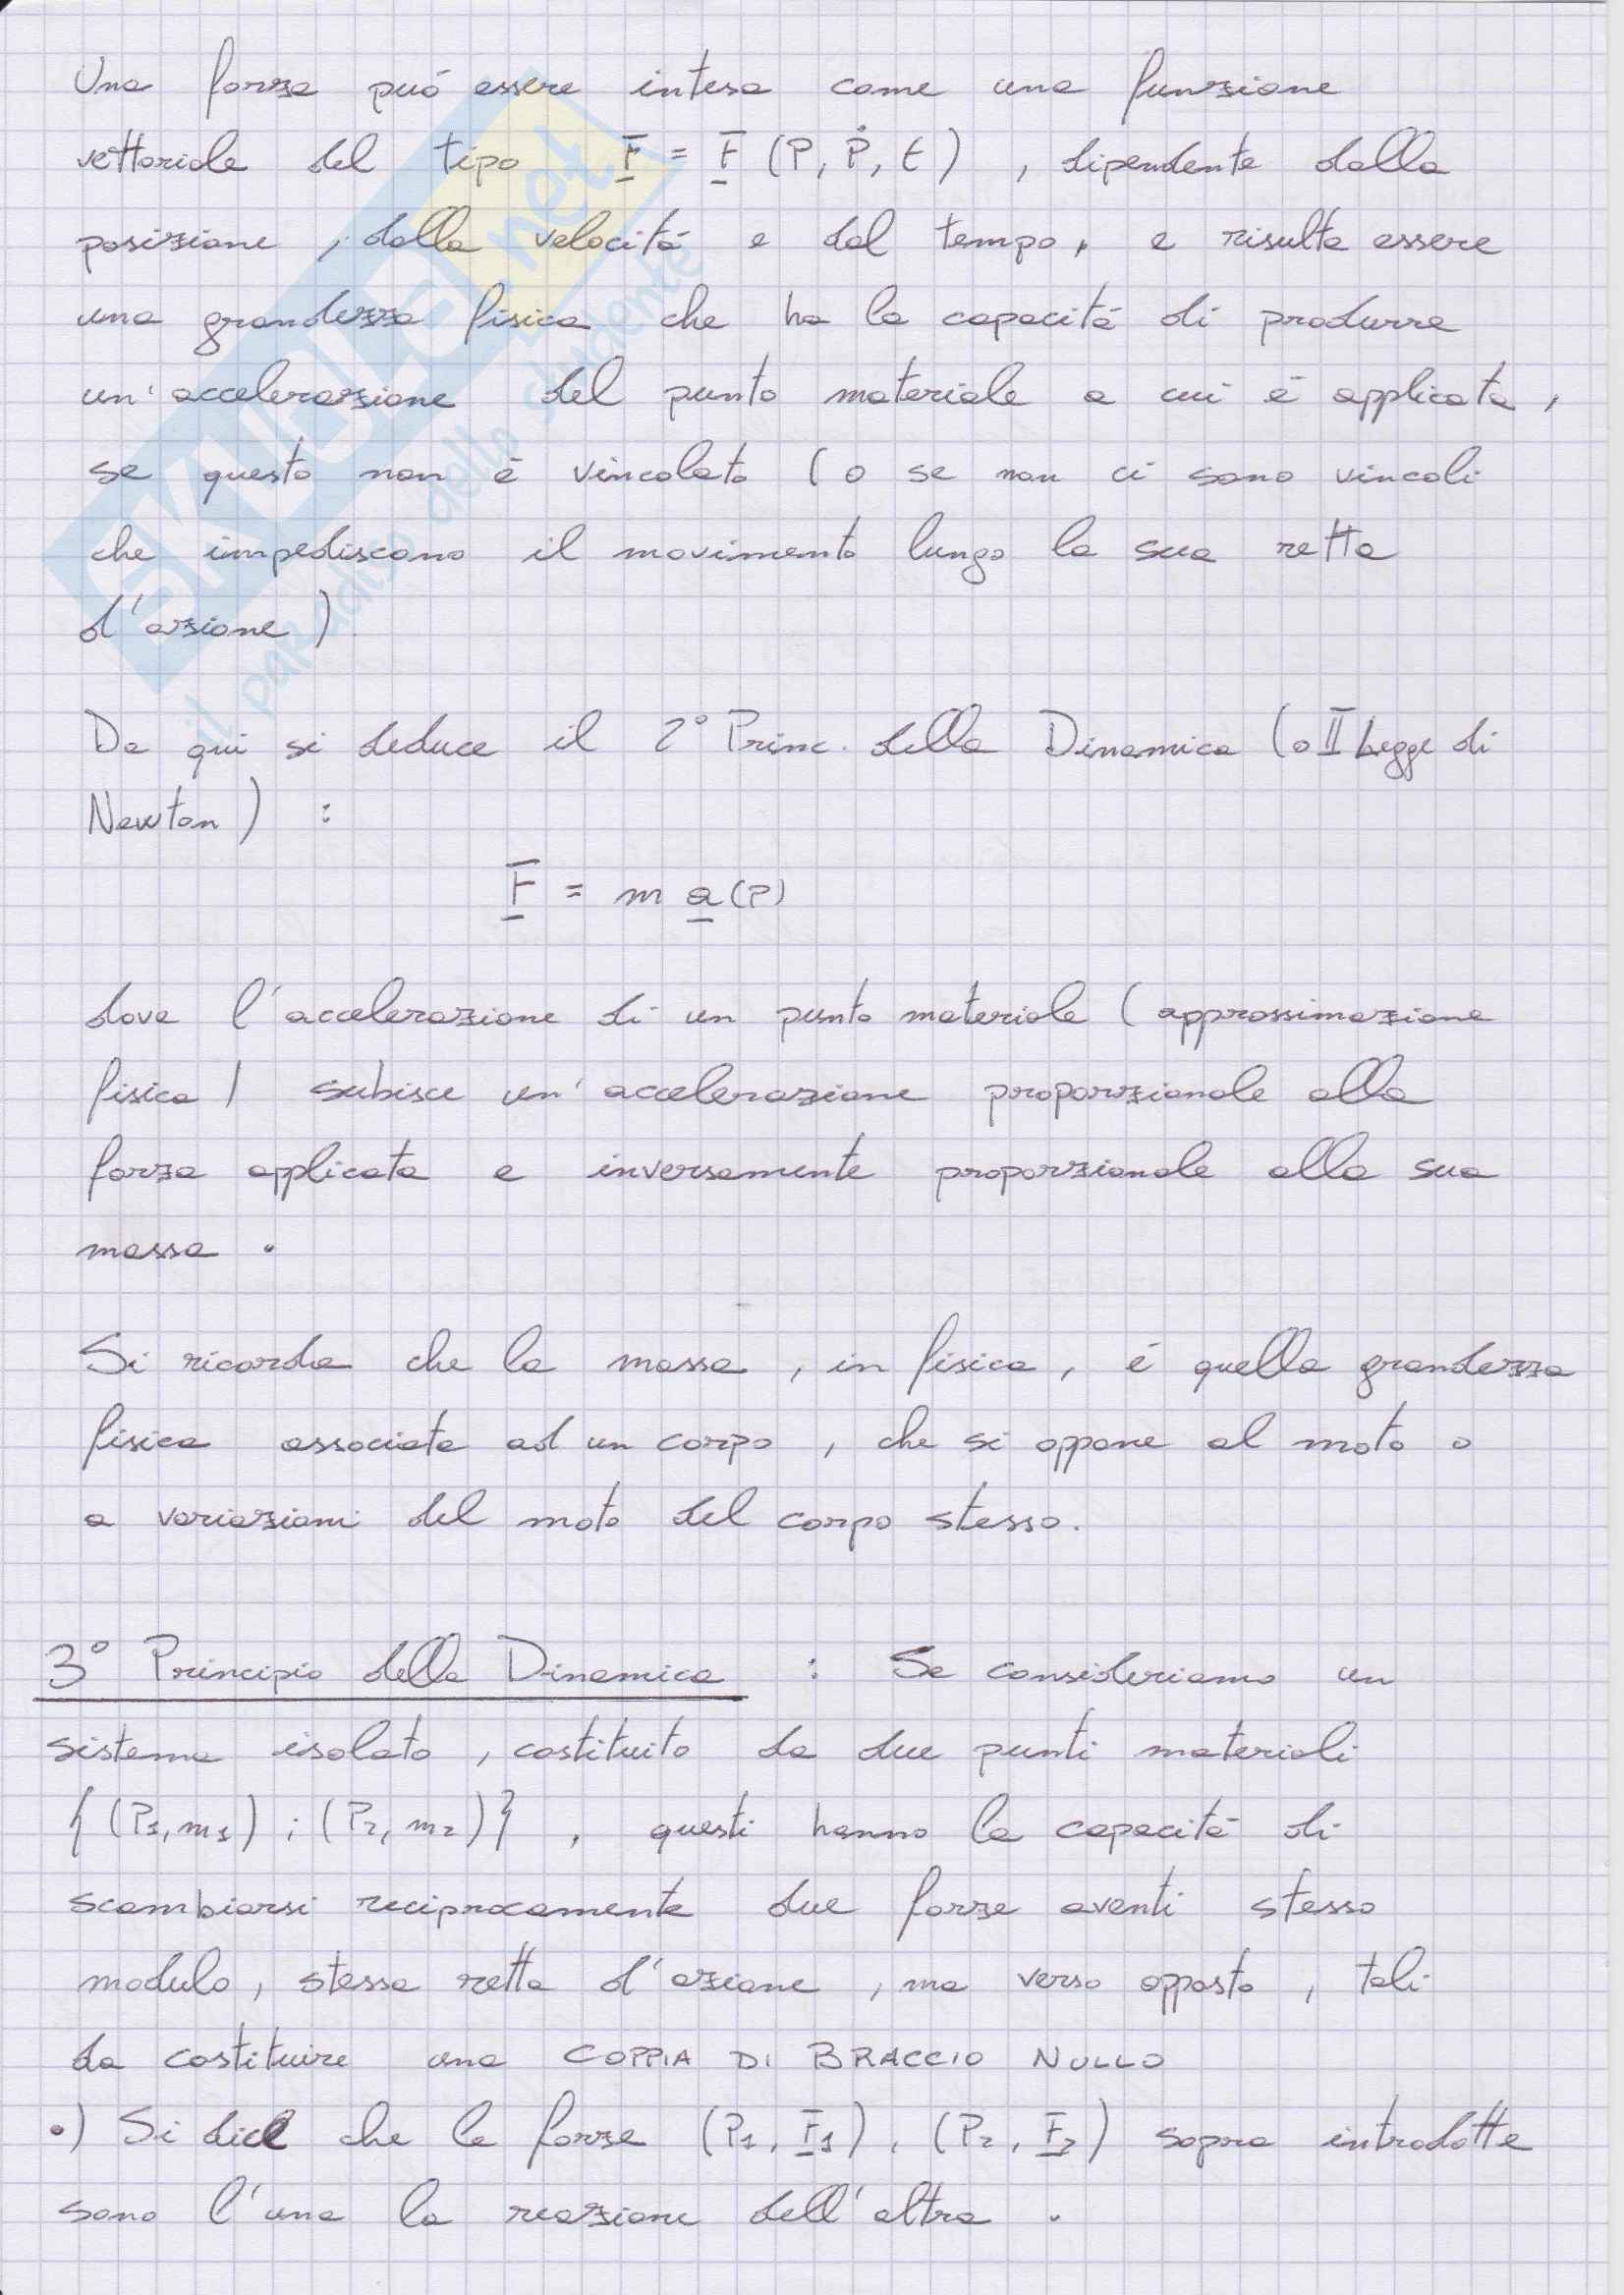 Una forza può essere intesa come una funzione
vettoriale del tipo F = F (P, Ṗ, t) , dipendente dalla
posizione , dalla velocità e dal tempo, e risulta essere
una grandezza fisica che ha la capacità di produrre
un'accelerazione del punto materiale a cui è applicata,
se questo non è vincolato (o se non ci sono vincoli
che impediscono il movimento lungo la sua retta
d'azione).
Da qui si deduce il 2° Princ. della Dinamica (o II Legge di
Newton) :
F = m a (P)
dove l'accelerazione di un punto materiale (approssimazione
fisica) subisce un'accelerazione proporzionale alla
forza applicata e inversamente proporzionale alla sua
massa .
Si ricorda che la massa , in fisica , è quella grandezza
fisica associata ad un corpo , che si oppone al moto o
a variazioni del moto del corpo stesso.
3° Principio della Dinamica : Se consideriamo un
sistema isolato , costituito da due punti materiali
{(P1, m1) ; (P2, m2)} , questi hanno la capacità di
scambiarsi reciprocamente due forze aventi stesso
modulo, stessa retta d'azione , ma verso opposto , tali
da costituire una COPPIA DI BRACCIO NULLO
•) Si dice che le forze (P1, F1) , (P2, F2) sopra introdotte
sono l'una la reazione dell'altra .
SKUOLA.net
il paradiso dello studente